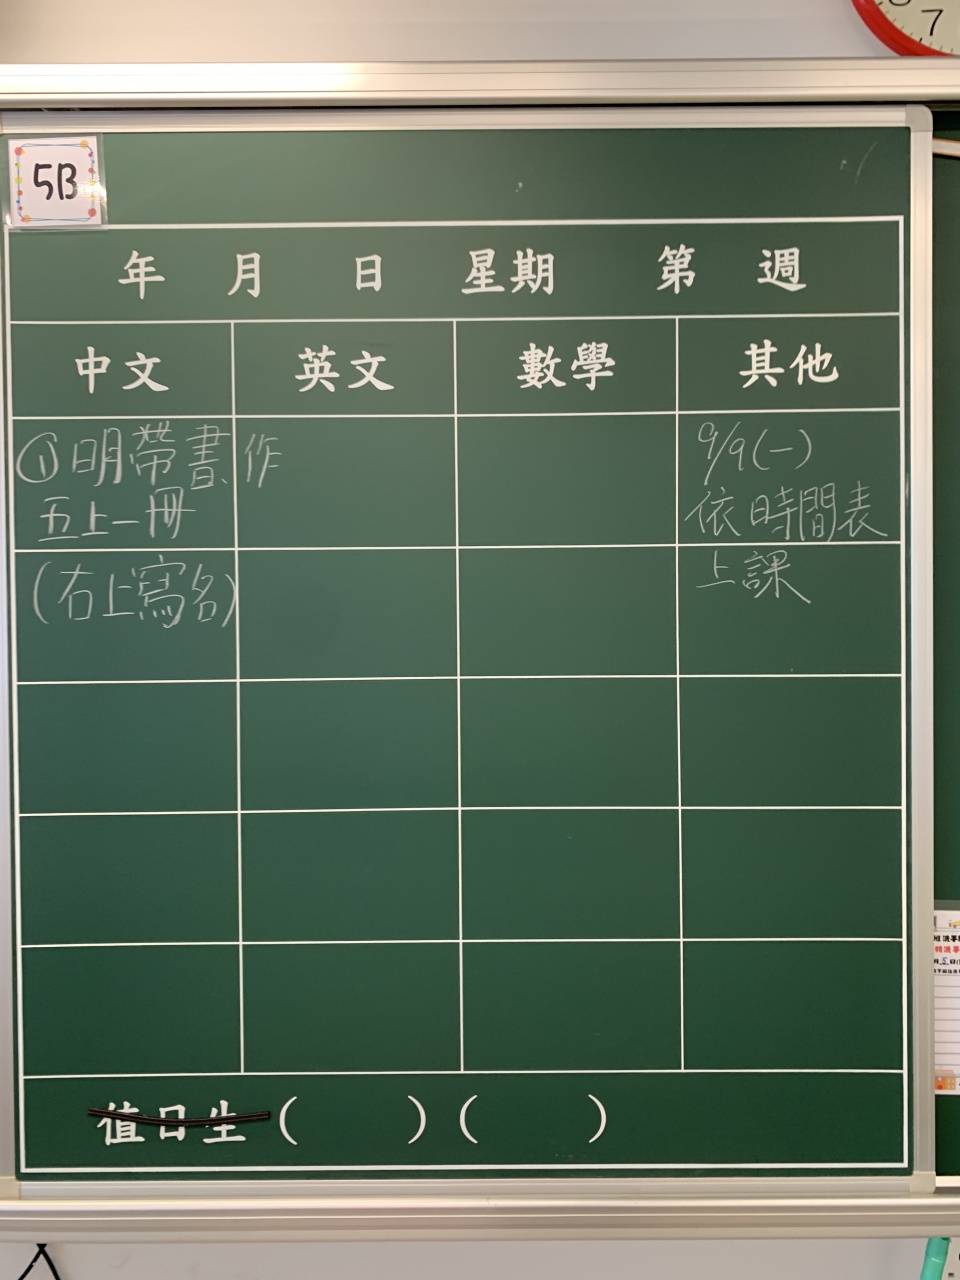 7
5B
年 月 日 星期 第 週
中文 英文 數學 其他
①明帶書作
五上一冊
(右上寫名)
9/9(一)
依時間表
上課
值日生( )( )